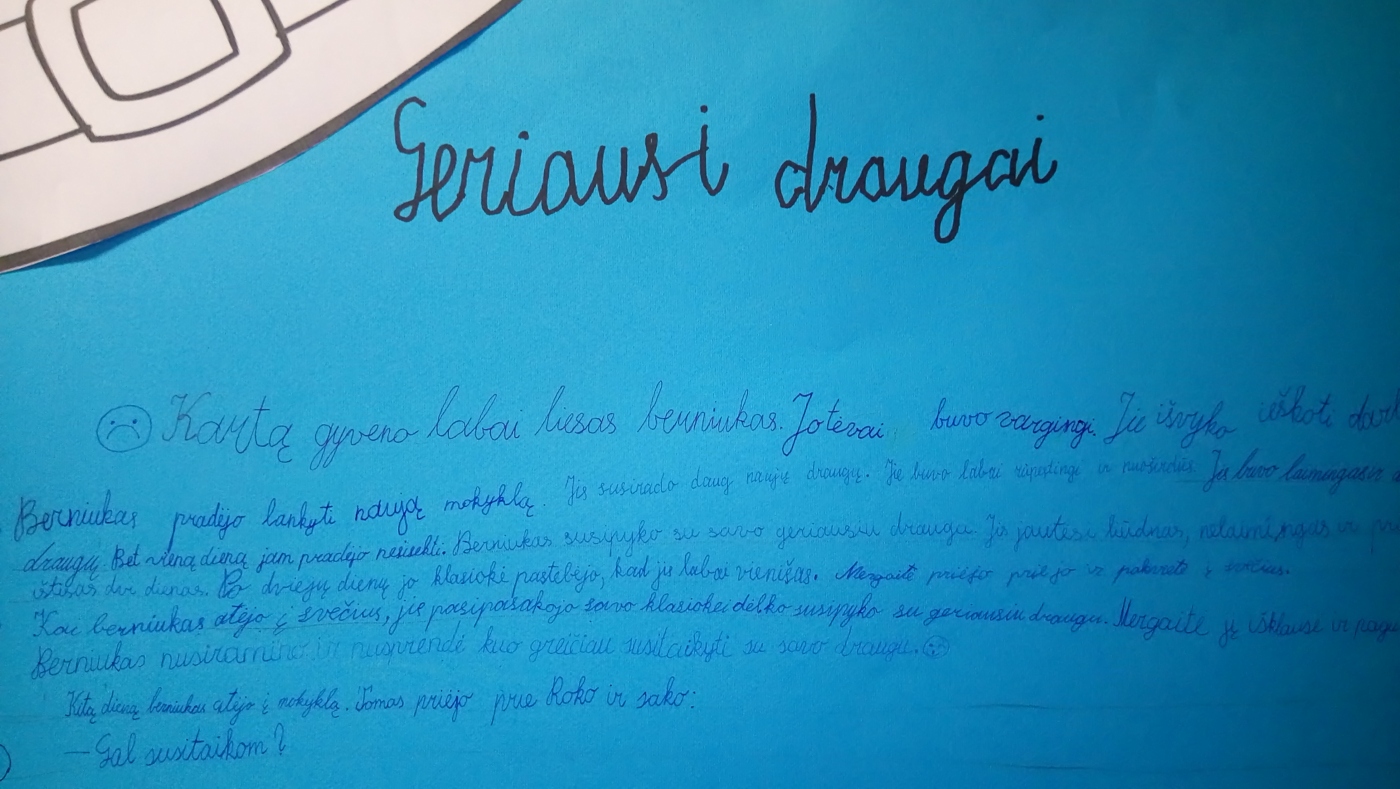 Geriausi draugai
Kartą gyveno labai liesas berniukas. Jo tėvai buvo vargingi. Jie išvyko ieškoti
Berniukas pradėjo lankyti naują mokyklą. Jis susirado daug naujų draugų. Jie buvo labai rūpestingi ir nuoširdūs. Jis buvo laimingas
draugų. Bet vieną dieną jam pradėjo nesisekti. Berniukas susipyko su savo geriausiu draugu. Jis jautėsi liūdnas, nelaimingas ir
ištisas dvi dienas. Po dviejų dienų jo klasiokė pastebėjo, kad jis labai vienišas. Mergaitė priėjo prie jo ir pakvietė į svečius.
Kai berniukas atėjo į svečius, jis pasipasakojo savo klasiokei dėlko susipyko su geriausiu draugu. Mergaitė jį išklausė ir
Berniukas nusiramino ir nusprendė kuo greičiau susitaikyti su savo draugu.
Kitą dieną berniukas atėjo į mokyklą. Tomas priėjo prie Roko ir sako:
— Gal susitaikom?